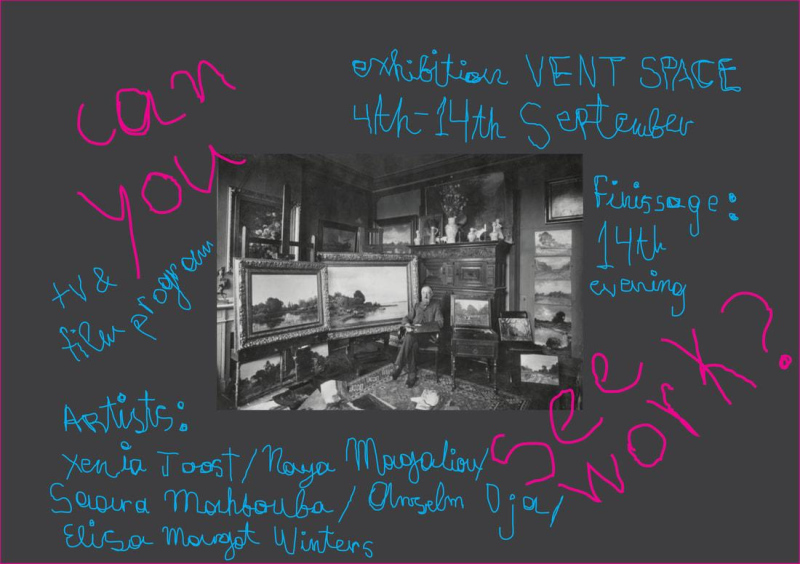 can
you
see
work?
exhibition VENT SPACE
4th-14th September
Finissage:
14th
evening
tv &
film program
Artists:
Xenia Joost/Naya Magaliou/
Saara Mahbouba/Anselm Oja/
Elisa Margot Winters